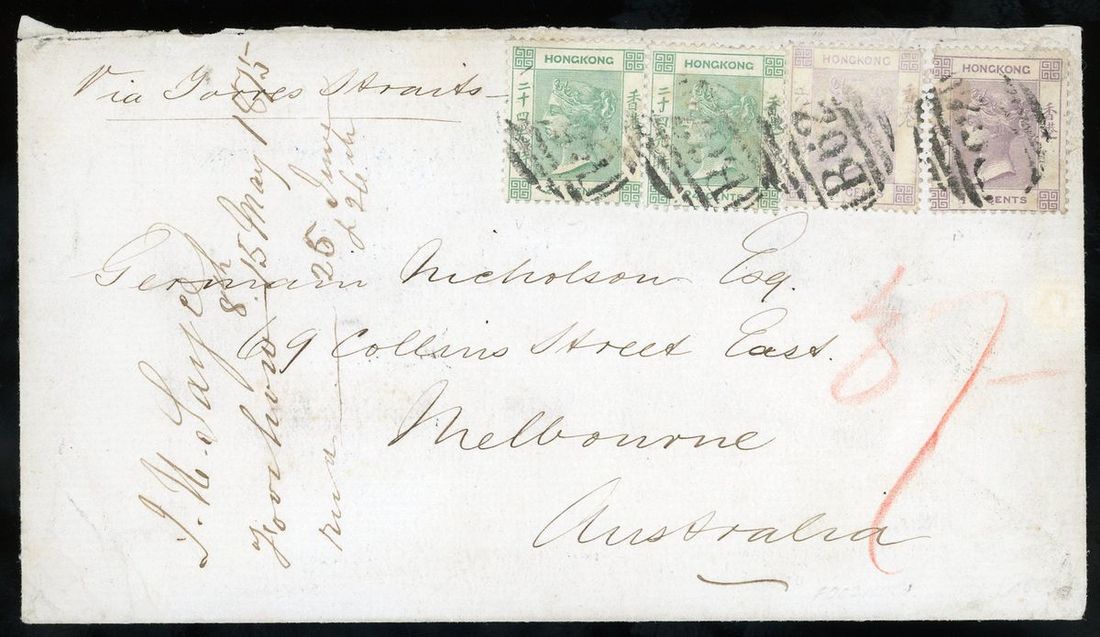 Via Torres Straits
HONGKONG
HONGKONG
HONGKONG
HONGKONG
二十四
香港
二十四
香港
CENTS
CENTS
B62
Germain Nicholson Esq.
69 Collins Street East.
Melbourne
Australia
8/-
Foochow 8th 15 May 1875
25 June